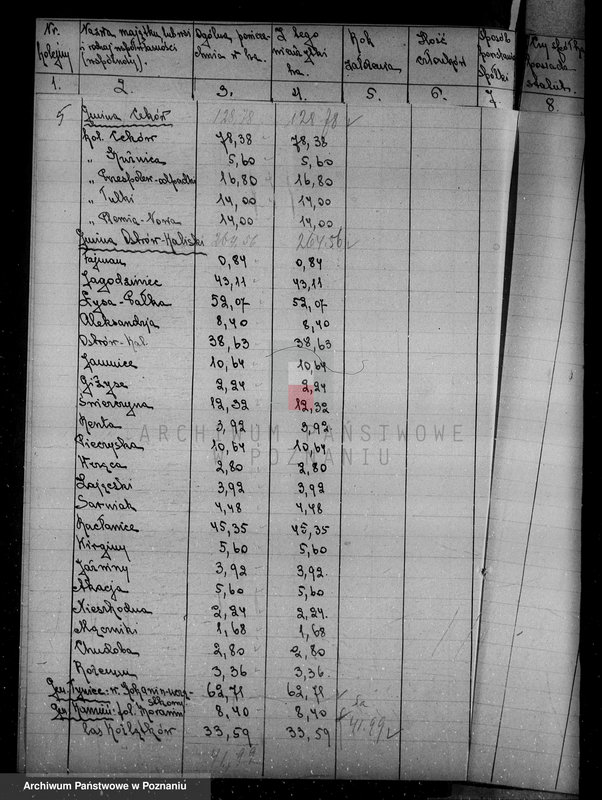 Nr. kolejny Nazwa majątku lub wsi i rodzaj wspólnoty (wspólnoty). Ogólna powierzchnia w ha. Z tego nieużytki ha. Rok założenia Ilość członków Sposób powstania spółki Czy spółka posiada statut.
1. 2. 3. 4. 5. 6. 7. 8.
5 Gmina Ceków 128 78 128 78
Kol. Ceków 78,38 78,38
„ Kuźnica 5,60 5,60
„ Przespolew-odpadki 16,80 16,80
„ Tulki 14,00 14,00
„ Plewnia-Nowa 14,00 14,00
Gmina Ostrów-Kaliski 264.56 264.56
Fajum 0,84 0,84
Jagodziniec 43,11 43,11
Łysa-Pałka 52,07 52,07
Aleksandrja 8,40 8,40
Ostrów-Kal. 38,63 38,63
Zawnice 10,64 10,64
Giżyce 2,24 2,24
Świerczyna 12,32 12,32
Kenta 3,92 3,92
Pieczyska 10,64 10,64
Kręca 2,80 2,80
Zajączki 3,92 3,92
Sarniak 4,48 4,48
Racławice 45,35 45,35
Kirginy 5,60 5,60
Jarniny 3,92 3,92.
Akacja 5,60 5,60
Nieszkodna 2,24 2,24.
Mączniki 1,68 1,68
Chudoba 2,80 2,80
Kolenun 3,36 3,36.
Gm. Tyniec 62,78 62,78
Gm. Kamień: fol. 8,40 8,40
las Koźlątków 33,59 33,59 41.99
41,92
ARCHIWUM PAŃSTWOWE
W POZNANIU
Archiwum Państwowe w Poznaniu